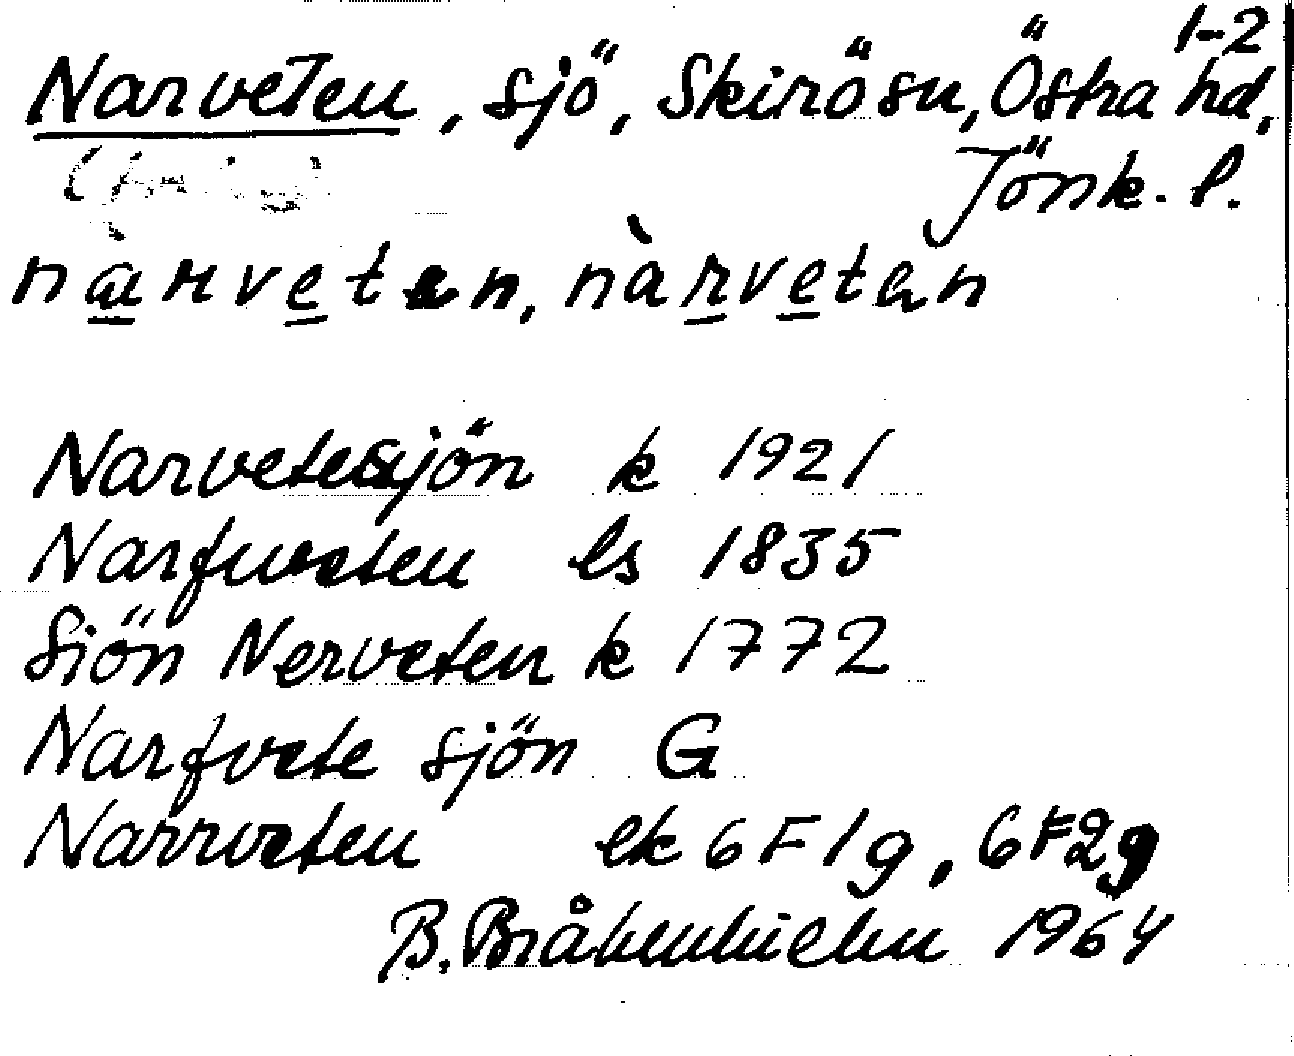 1-2
Narveten, sjö, Skirö sn, Östra hd,
Jönk. l.
nàrvetən, nàrvetən
Narvetesjön k 1921
Narfveten ls 1835
Siön Nerveten k 1772
Narfvete sjön G
Narrveten ek 6F1g, 6F2g
B. 1964